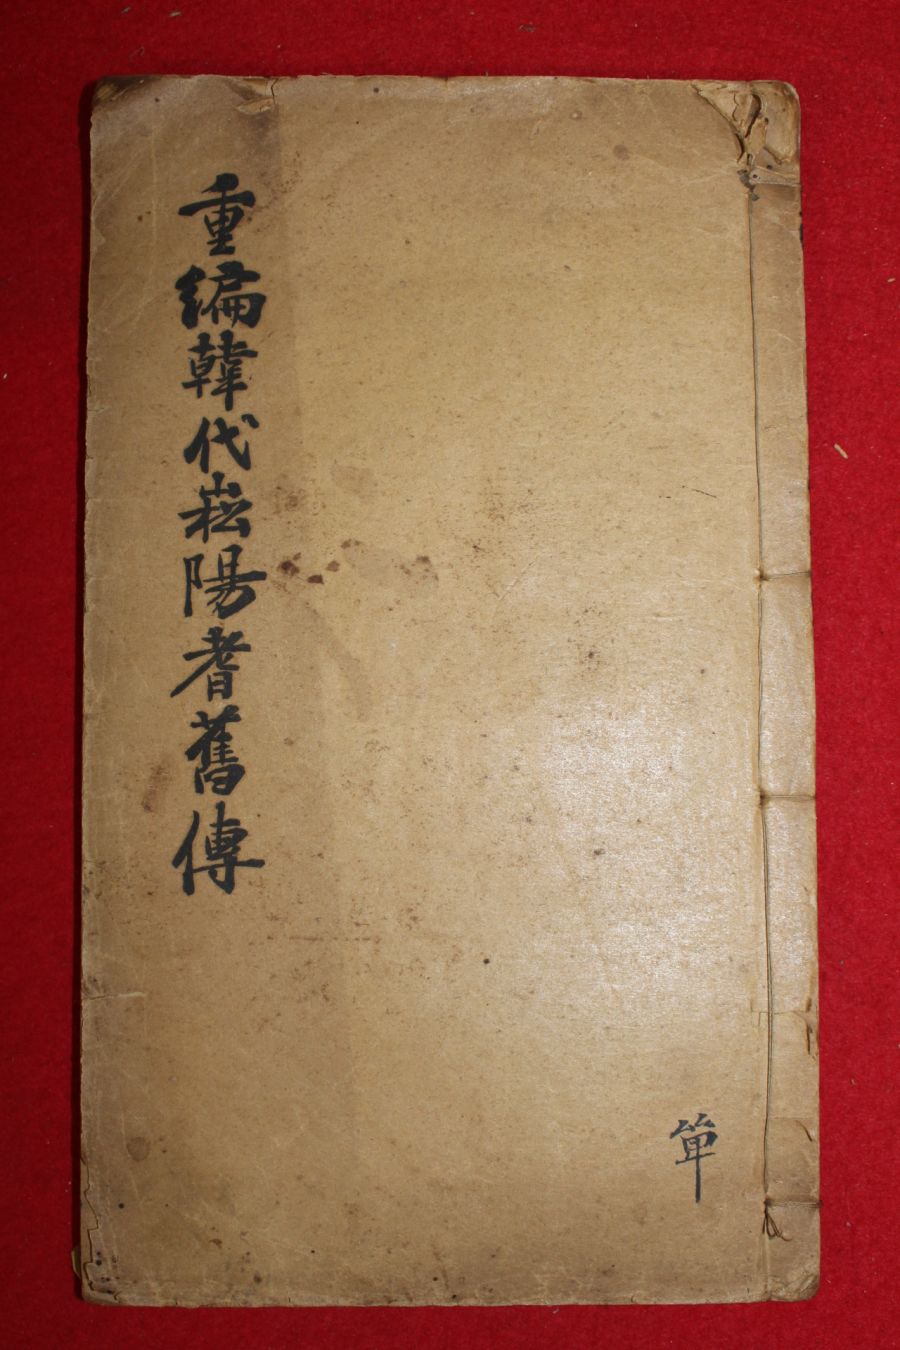 重編韓代崧陽耆舊傳